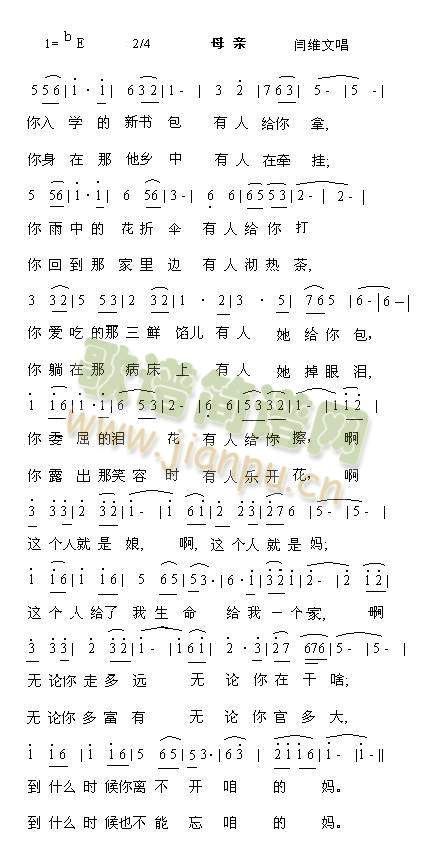 1= ♭E 2/4 母 亲 闫维文唱
5 5 6 | 1 · 1 | 6 3 2 | 1 - | 3 2 | 7 6 3 | 5 - | 5 - |
你入 学 的 新书 包 有 人 给你 拿,
你身 在 那 他乡 中 有 人 在牵 挂;
5 56 | 1 · 1 | 6 56 | 3 - | 6 6 | 65 53 | 2 - | 2 - |
你 雨 中 的 花 折 伞 有 人 给 你 打
你 回 到 那 家 里 边 有 人 沏 热 茶,
3 32 | 5 53 | 2 32 | 1 · 2 | 3 · 5 | 765 | 6 - | 6 - |
你 爱 吃 的 那 三 鲜 馅儿 有 人 她 给 你 包,
你 躺 在 那 病 床 上 有 人 她 掉 眼 泪,
1 16 | 1 · 1 | 6 53 | 2 - | 6 6 | 5332 | 1 - | 112 |
你 委 屈 的 泪 花 有 人 给 你 擦, 啊
你 露 出 那 笑 容 时 有 人 乐 开 花, 啊
3 33 | 2 32 | 1 - | 1 61 | 2 23 | 27 6 | 5 - | 5 - |
这 个 人 就 是 娘, 啊, 这 个 人 就 是 妈;
1 16 | 1 16 | 5 65 | 53· | 6 · 1 | 321 | 2 - | 2 12 |
这 个 人 给 了 我 生 命 给 我 一 个 家, 啊
3 33 | 2 32 | 1 - | 161 | 2 · 3 | 27 676 | 5 - | 5 - |
无 论 你 走 多 远 无 论 你 在 干 啥;
无 论 你 多 富 有 无 论 你 官 多 大,
1 16 | 1 16 | 5 65 | 53· | 63 | 2116 | 1 - | 1 - ||
到 什 么 时 候 你 离 不 开 咱 的 妈。
到 什 么 时 候 也 不 能 忘 咱 的 妈。
歌谱简谱网
www.jianpu.cn